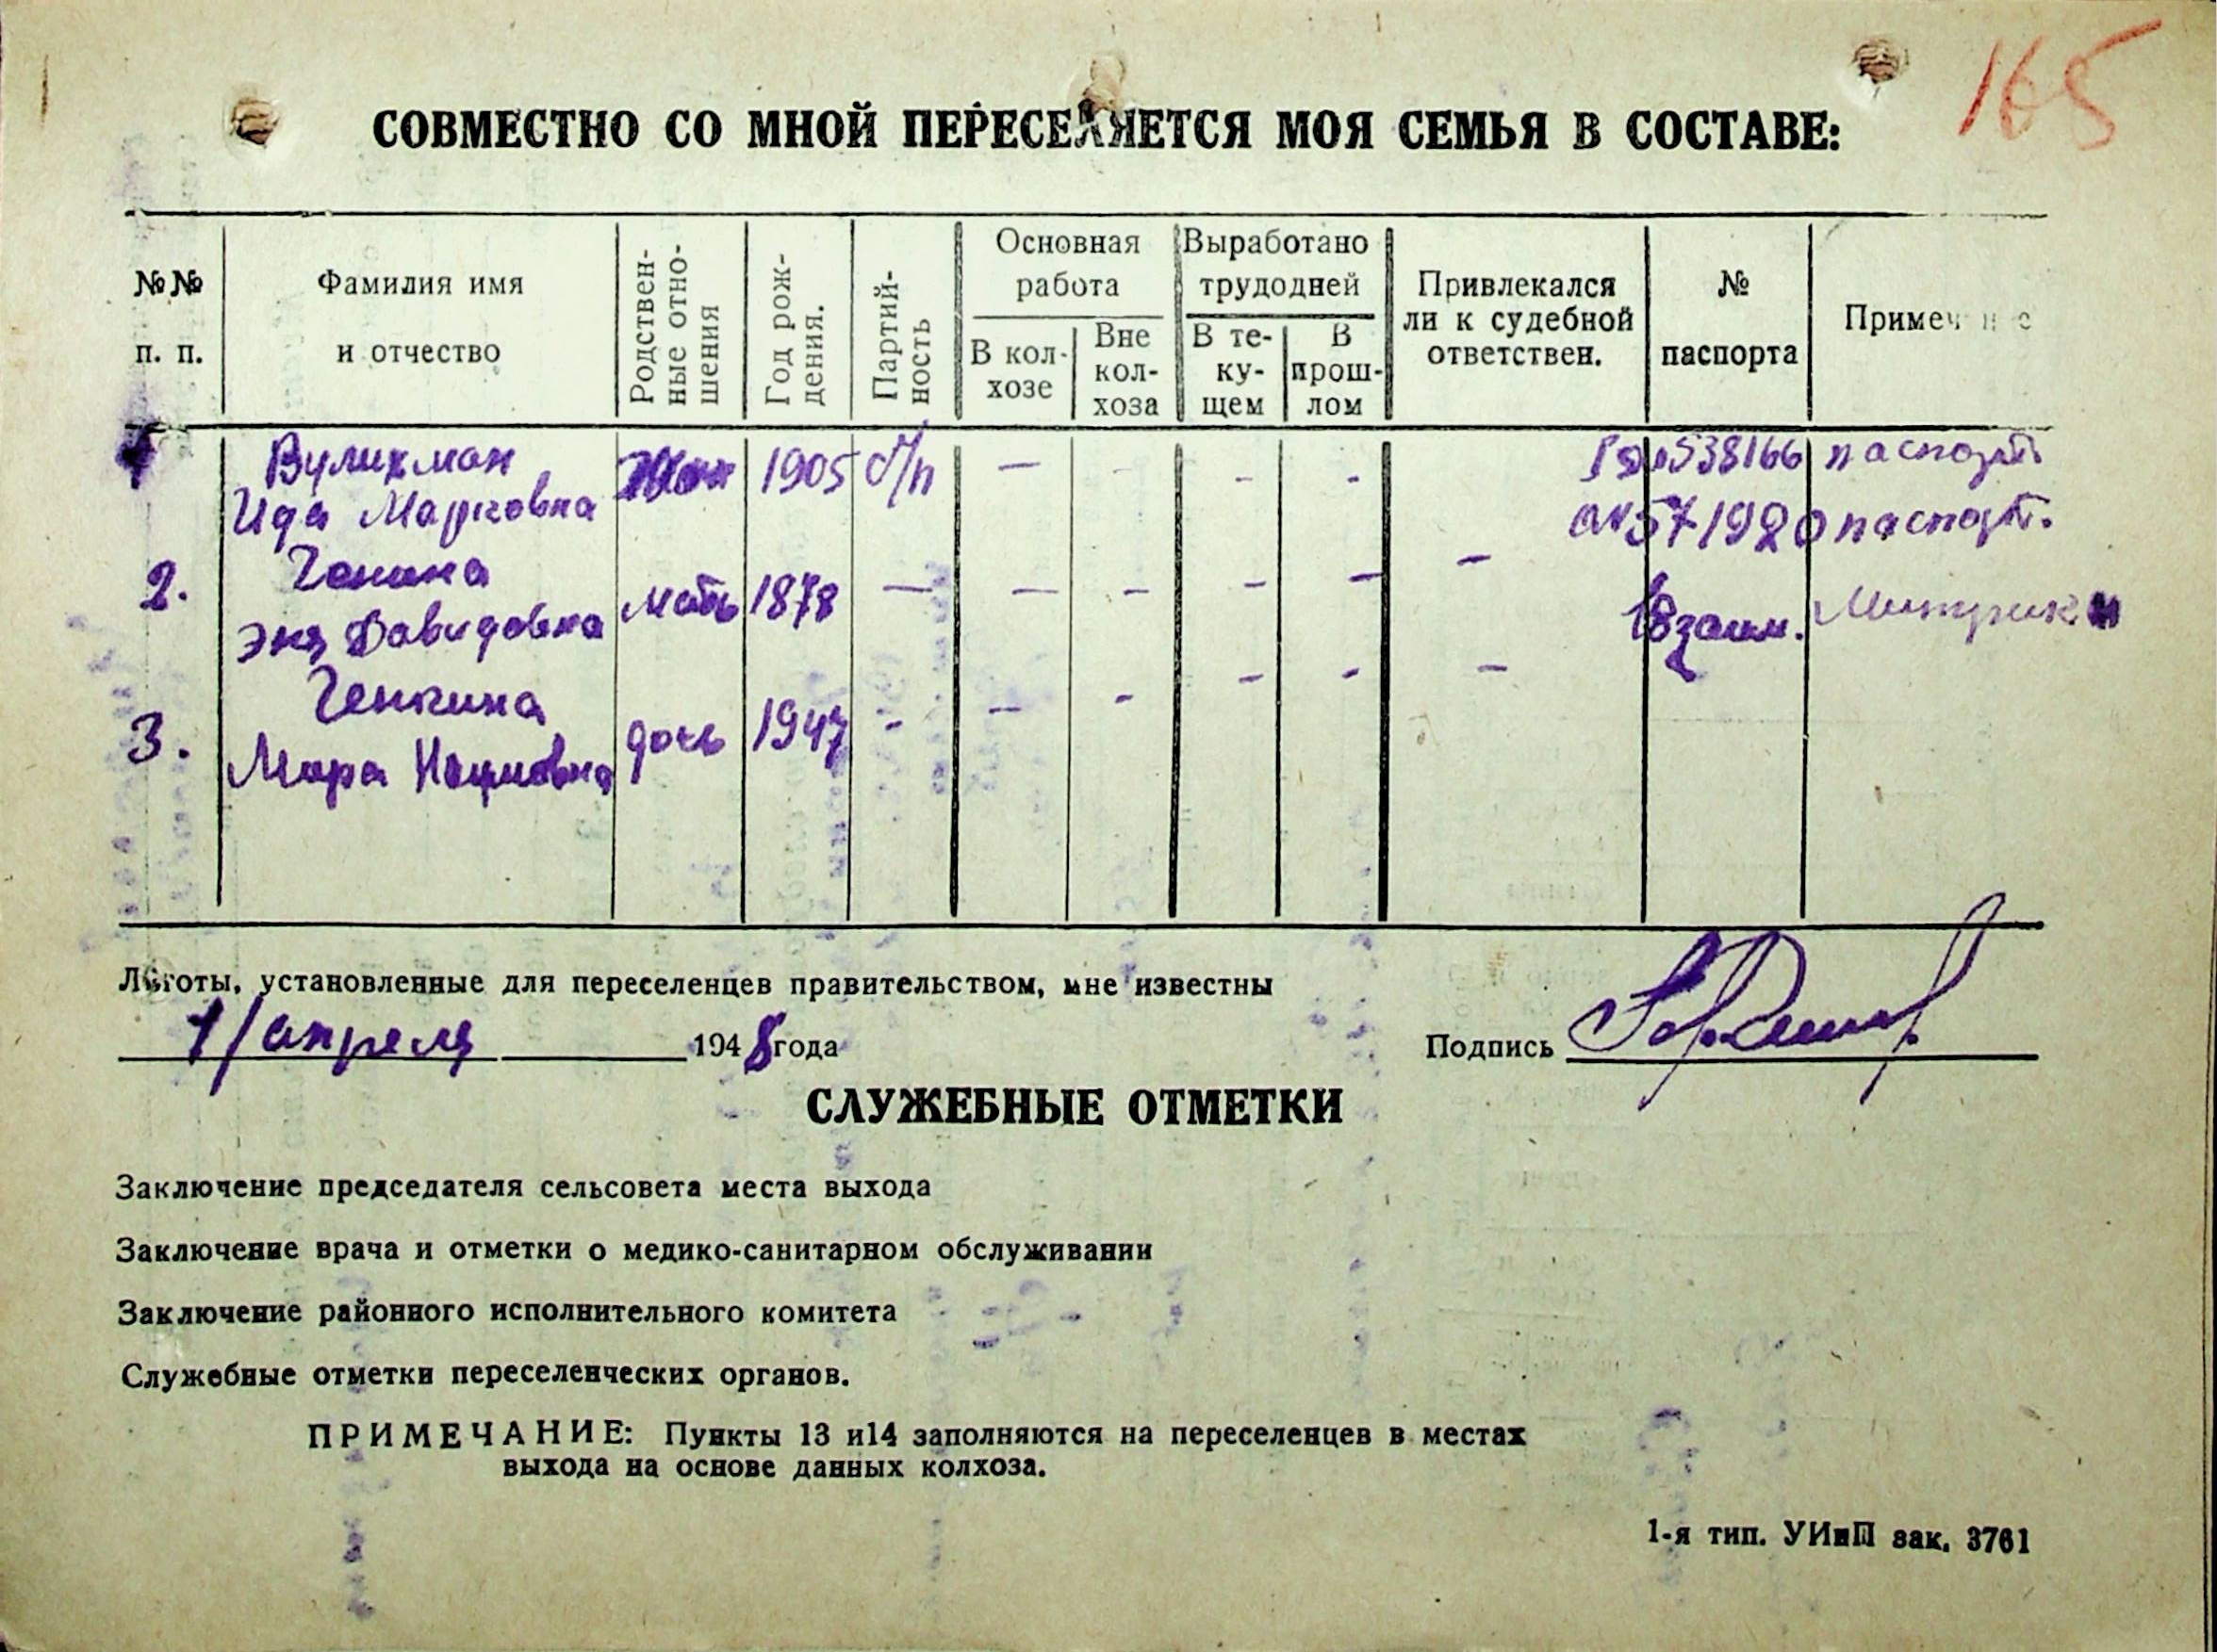 165
СОВМЕСТНО СО МНОЙ ПЕРЕСЕЛЯЕТСЯ МОЯ СЕМЬЯ В СОСТАВЕ:
№№ п. п.
Фамилия имя и отчество
Родствен-
ные отно-
шения
Год рож-
дения.
Партий-
ность
Основная
работа
В кол-
хозе
Вне
кол-
хоза
Выработано
трудодней
В те-
ку-
щем
В
прош-
лом
Привлекался
ли к судебной
ответствен.
№
паспорта
Примеч н е
1 Вулихман 1905 б/п — - - 538166 паспорт.
Ида Марковна 571920 паспорт.
2. Генина мать 1878 — — - - - -
Эня Давидовна Митрики
3. Генкина дочь 1947 - - - - - -
Мара Наумовна
Льготы, установленные для переселенцев правительством, мне известны
1/апреля 1948 года
Подпись
СЛУЖЕБНЫЕ ОТМЕТКИ
Заключение председателя сельсовета места выхода
Заключение врача и отметки о медико-санитарном обслуживании
Заключение районного исполнительного комитета
Служебные отметки переселенческих органов.
ПРИМЕЧАНИЕ: Пункты 13 и14 заполняются на переселенцев в местах
выхода на основе данных колхоза.
1-я тип. УИиП зак. 3761